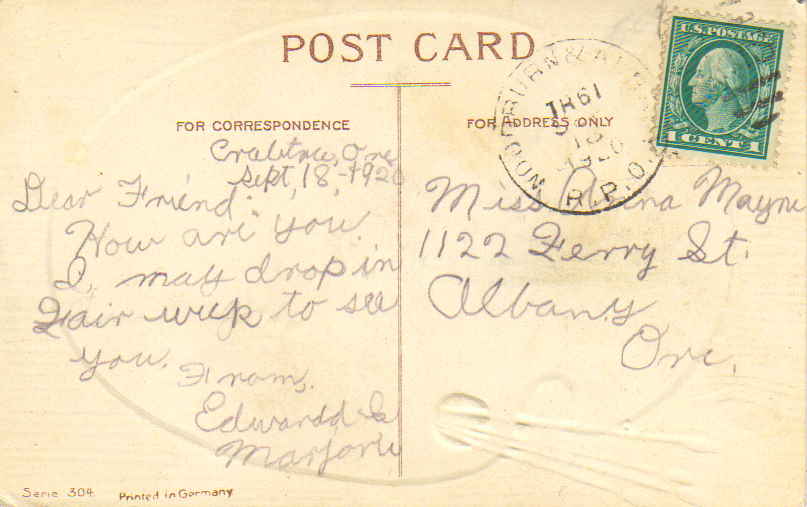 POST CARD
FOR CORRESPONDENCE
FOR ADDRESS ONLY
U.S. POSTAGE
1 CENT 1
WOODBURN &
TR61
18
1920
R.P.O.
Crabtree, Ore
Sept, 18, -1920
Dear Friend:
How are you
I, may drop in
Fair week to see
you.
From,
Edwardd &
Marjorie
Miss Anna Mayne
1122 Ferry St.
Albany
Ore.
Serie 304
Printed in Germany